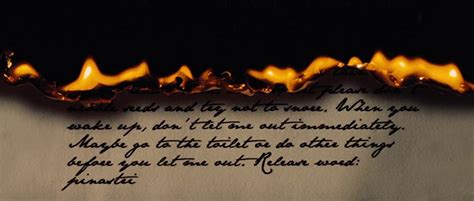 please don't
seeds and try not to snore. When you
wake up, don't let me out immediately.
Maybe go to the toilet or do other things
before you let me out. Release word:
pinastri